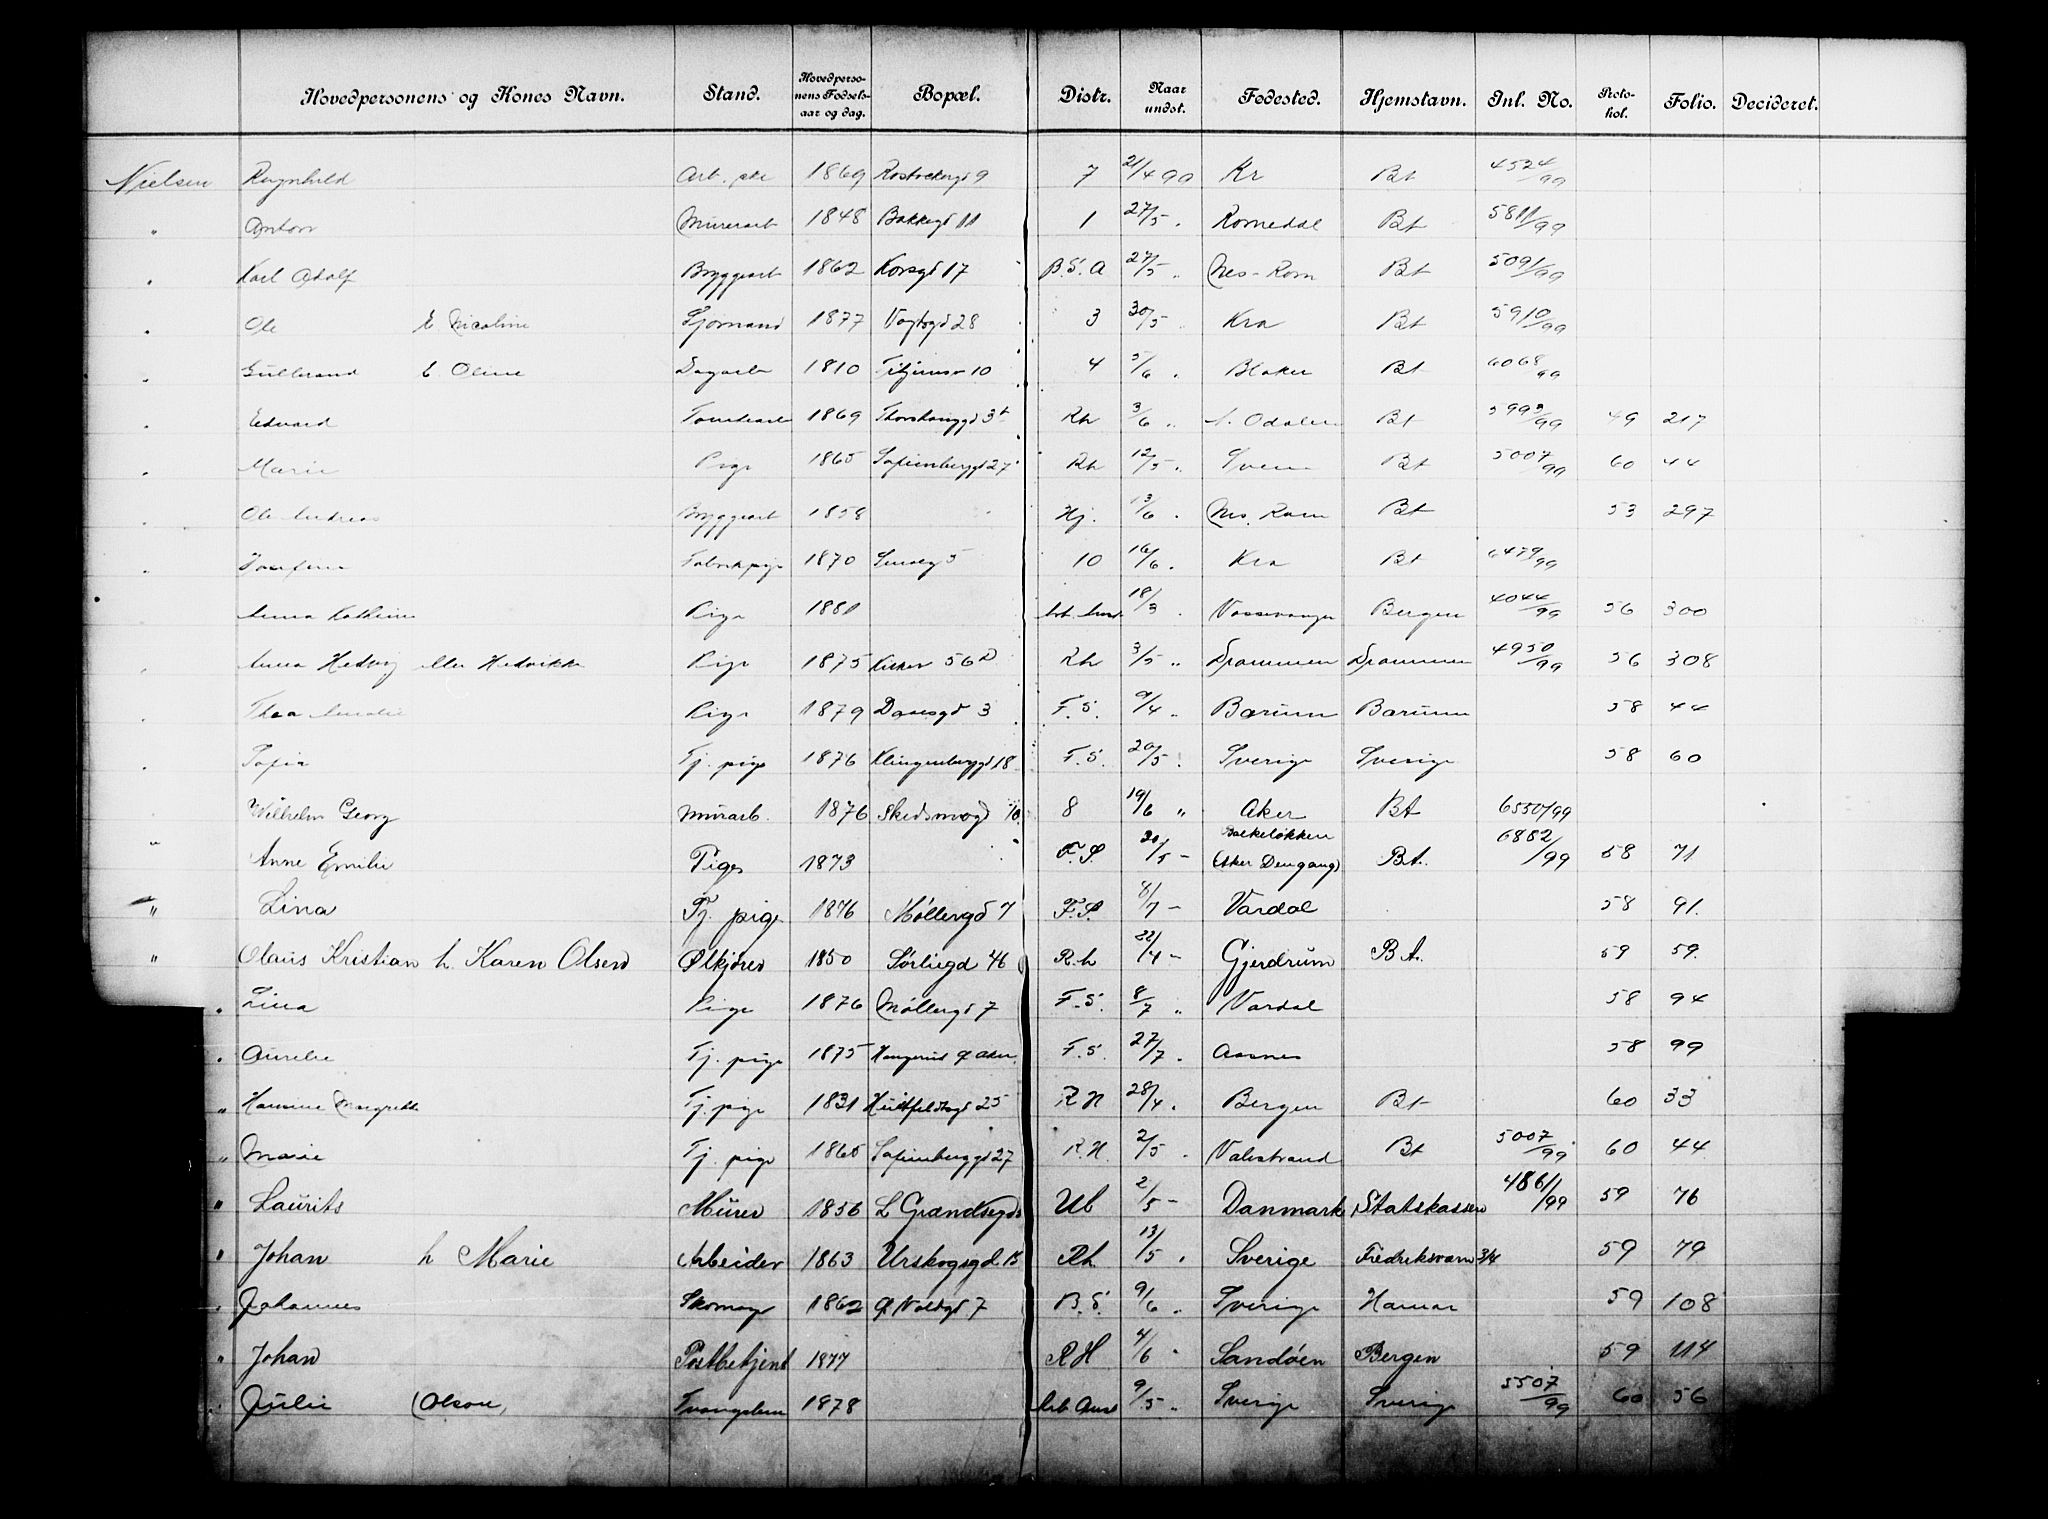 Hovedpersonens og Kones Navn. Stand. Hovedpersonens Fødselsaar og dag. Bopæl. Distr. Naar undst. Fødested. Hjemstavn. Inl. No. Protohol. Folio. Decideret.
Nielsen Ragnhild Arb. pke 1869 Rostocksgd 9 7 21/4 99 Kr Bt 4524/99
" Anton Murerarb 1848 Bakkegd 11 1 27/5 " Romedal Bt 5811/99
" Karl Adolf Bryggearb 1862 Korsgd 17 B.S. A 27/5 " Nes-Rom Bt 5091/99
" Ole E. Nicoline Sjømand 1877 Vogtsgd 28 3 30/5 " Kra Bt 5910/99
" Gulbrand E. Oline Dagarb 1810 10 4 5/6 " Blaker Bt 6068/99
" Edvard Tomtearb 1869 3 Rh 3/6 " Odalen Bt 5993/99 49 217
" Marie Pige 1865 Sofienberggd 27 Rh 12/5 " Bt 5007/99 60 44
" Ole Andreas Bryggearb 1858 Hj. 13/6 " Nes. Rom Bt 53 297
" Josefine Fabrikpige 1870 5 10 16/6 " Kra Bt 6479/99
Anna Kathrine Pige 1881 18/3 " Vossevangen Bergen 4044/99 56 300
" Anna Hedvig eller Hedvikke Pige 1875 Kirkev 56 D Rh 3/5 " Drammen Drammen 4950/99 56 308
" Thea Amalie Pige 1879 Daasgd 3 F.S. 9/4 " Bærum Bærum 58 44
" Sofie Tj. pige 1876 Klingenberggd 18 F.S. 20/5 " Sverige Sverige 58 60
Wilhelm Georg Murarb. 1876 Skedsmogd 10 8 19/6 " Aker Bt 6550/99
" Anne Emilie Pige 1873 F.S. 20/5 - Bakkeløkken (Aker Dengang) Bt. 6882/99 58 71
" Lina Tj. pige 1876 Møllergd 7 F.S. 8/7 - Vardal 58 91.
" Olaus Kristian h. Karen Olsen Ølkjører 1850 Sørliegd 46 R.h 22/4 - Gjerdrum Bt. 59 59.
" Lina Pige 1876 Møllergd 7 F.S. 8/7 " Vardal 58 94
" Aurelie Tj. pige 1875 Haugerud Ø Aker. F.S. 27/7 " Aasnes 58 99
" Hansine Margrethe Tj. pige 1831 Huitfeldtsgd 25 R H 28/4 " Bergen Bt 60 33
" Marie Tj. pige 1865 Sofienberggd 27 R.H. 2/5 " Valestrand Bt 5007/99 60 44
" Laurits Murer 1856 L Grændsegd Ub 2/5 - Danmark Statskassen 4861/99 59 76
" Johan h Marie Arbeider 1863 Urskogsgd 15 Rh 13/5 " Sverige Fredriksværn 3/4 59 79
" Johannes Skomager 1862 Ø Voldgd 7 B.S. 9/6 " Sverige Hamar 59 108
" Johan Postbetjent 1877 R H 4/6 " Sandøen Bergen 59 114
" Julie (Olsen) Tvangslem 1878 Arb Anst 9/5 " Sverige Sverige 5507/99 60 56